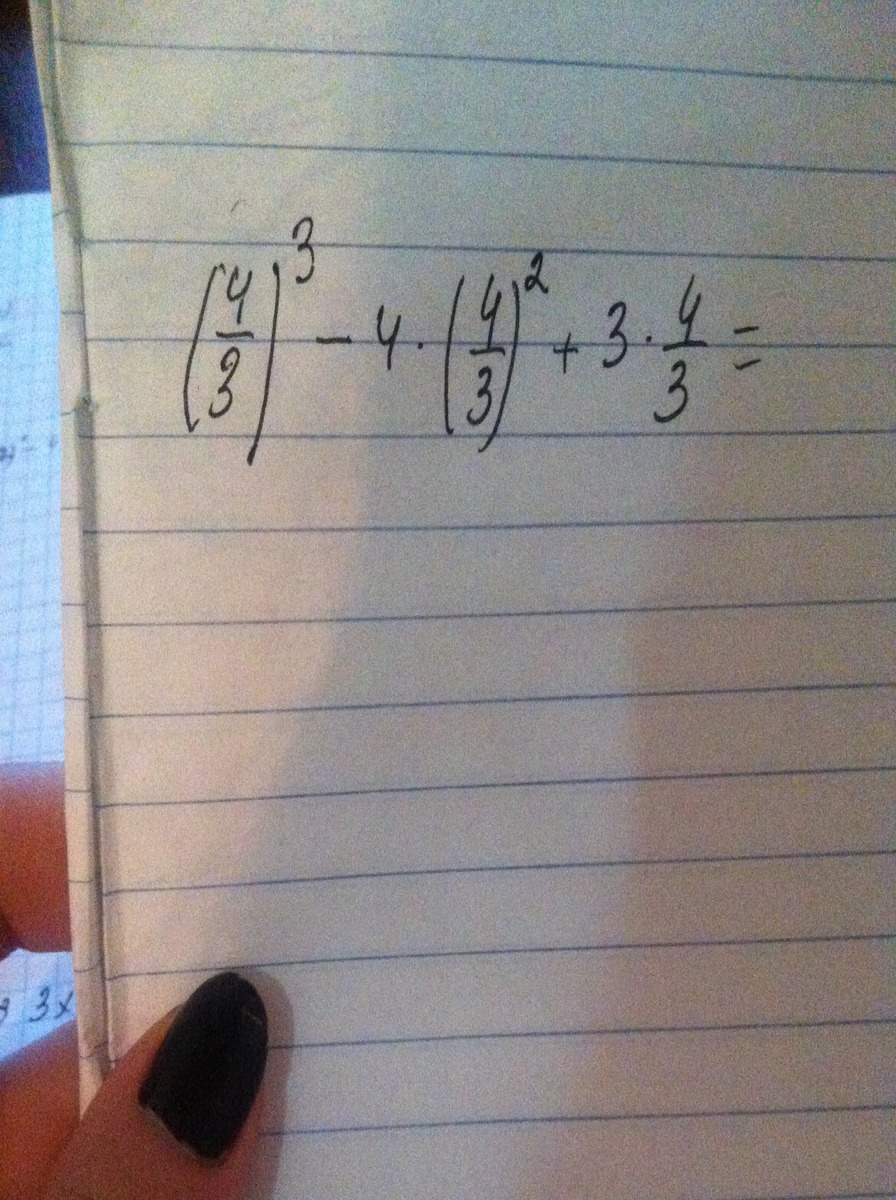 (4/3)³ − 4 · (4/3)² + 3 · 4/3 =
3x